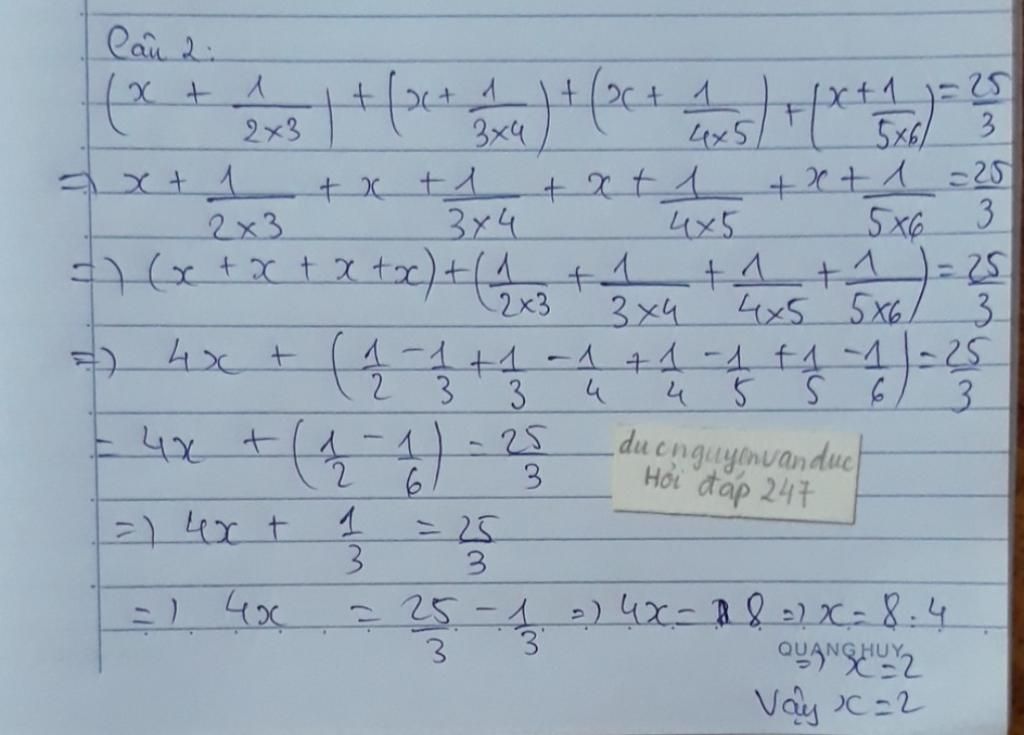 Câu 2:
(x + 1/(2×3)) + (x + 1/(3×4)) + (x + 1/(4×5)) + (x + 1/(5×6)) = 25/3
=) x + 1/(2×3) + x + 1/(3×4) + x + 1/(4×5) + x + 1/(5×6) = 25/3
=) (x + x + x + x) + (1/(2×3) + 1/(3×4) + 1/(4×5) + 1/(5×6)) = 25/3
=) 4x + (1/2 - 1/3 + 1/3 - 1/4 + 1/4 - 1/5 + 1/5 - 1/6) = 25/3
= 4x + (1/2 - 1/6) = 25/3
ducnguyenvanduc
Hỏi đáp 247
=) 4x + 1/3 = 25/3
=) 4x = 25/3 - 1/3 =) 4x = 8 =) x = 8 : 4
QUANG HUY
=) x = 2
Vậy x = 2